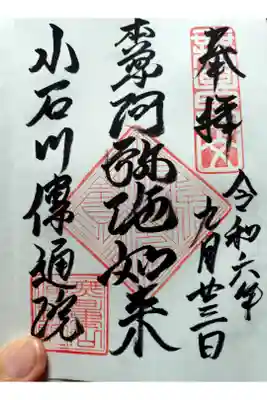 奉拝
令和六年
九月廿三日
本尊阿弥陀如来
小石川傳通院